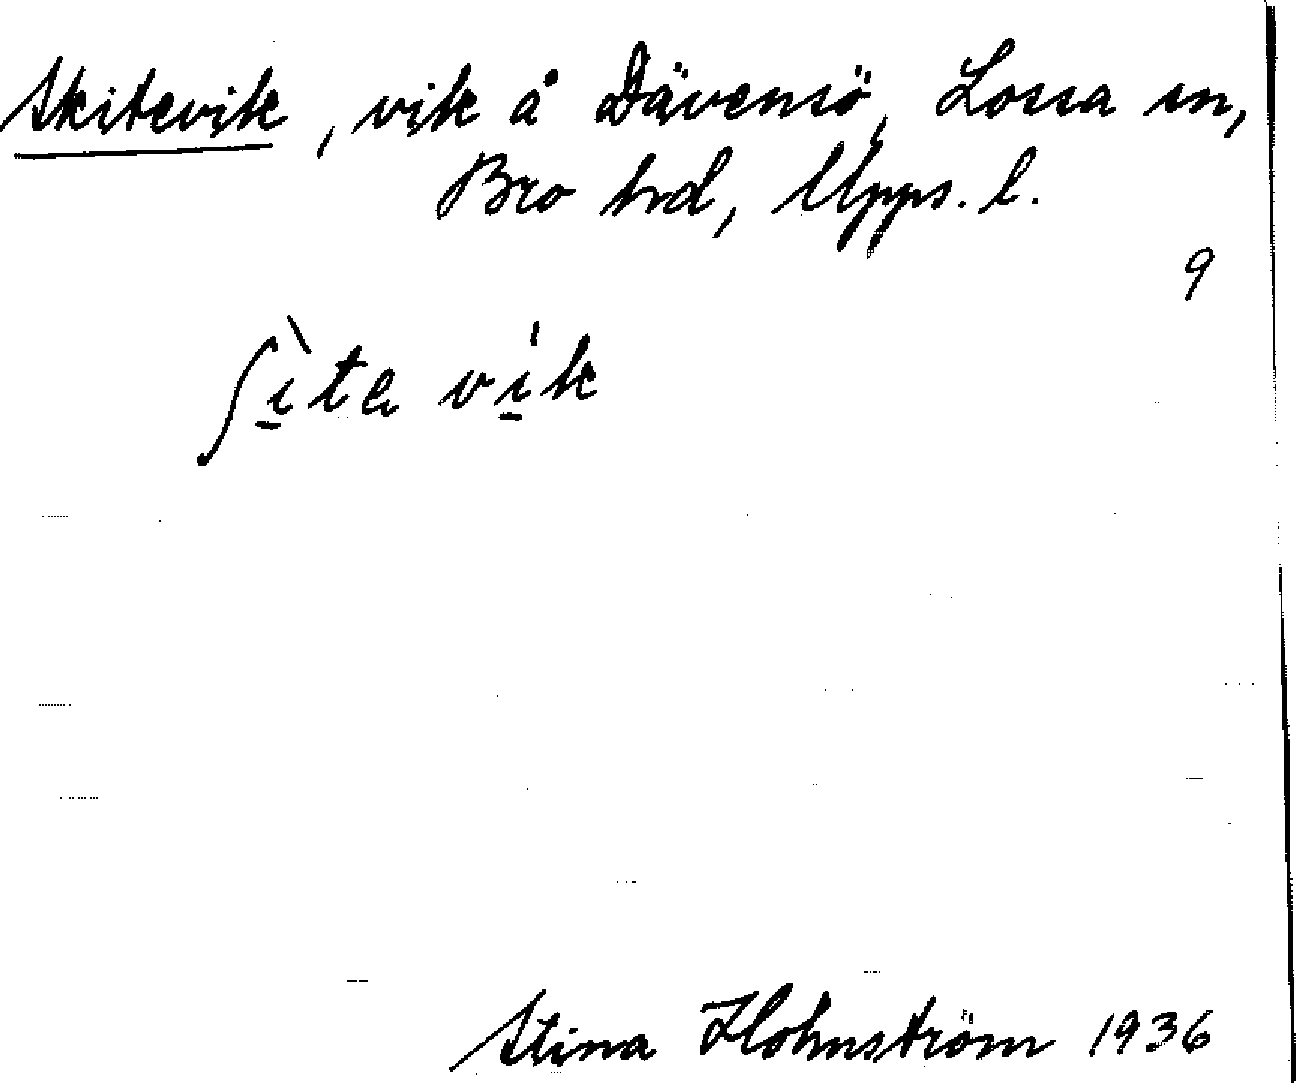 Skitevik, vik å Dävensö, Lossa sn,
Bro hd, Upps. l.
9
ʃìte vík
Stina Holmström 1936